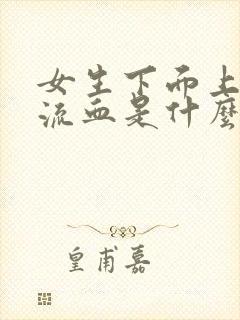 女生下面上
流血是什麼
皇甫嘉